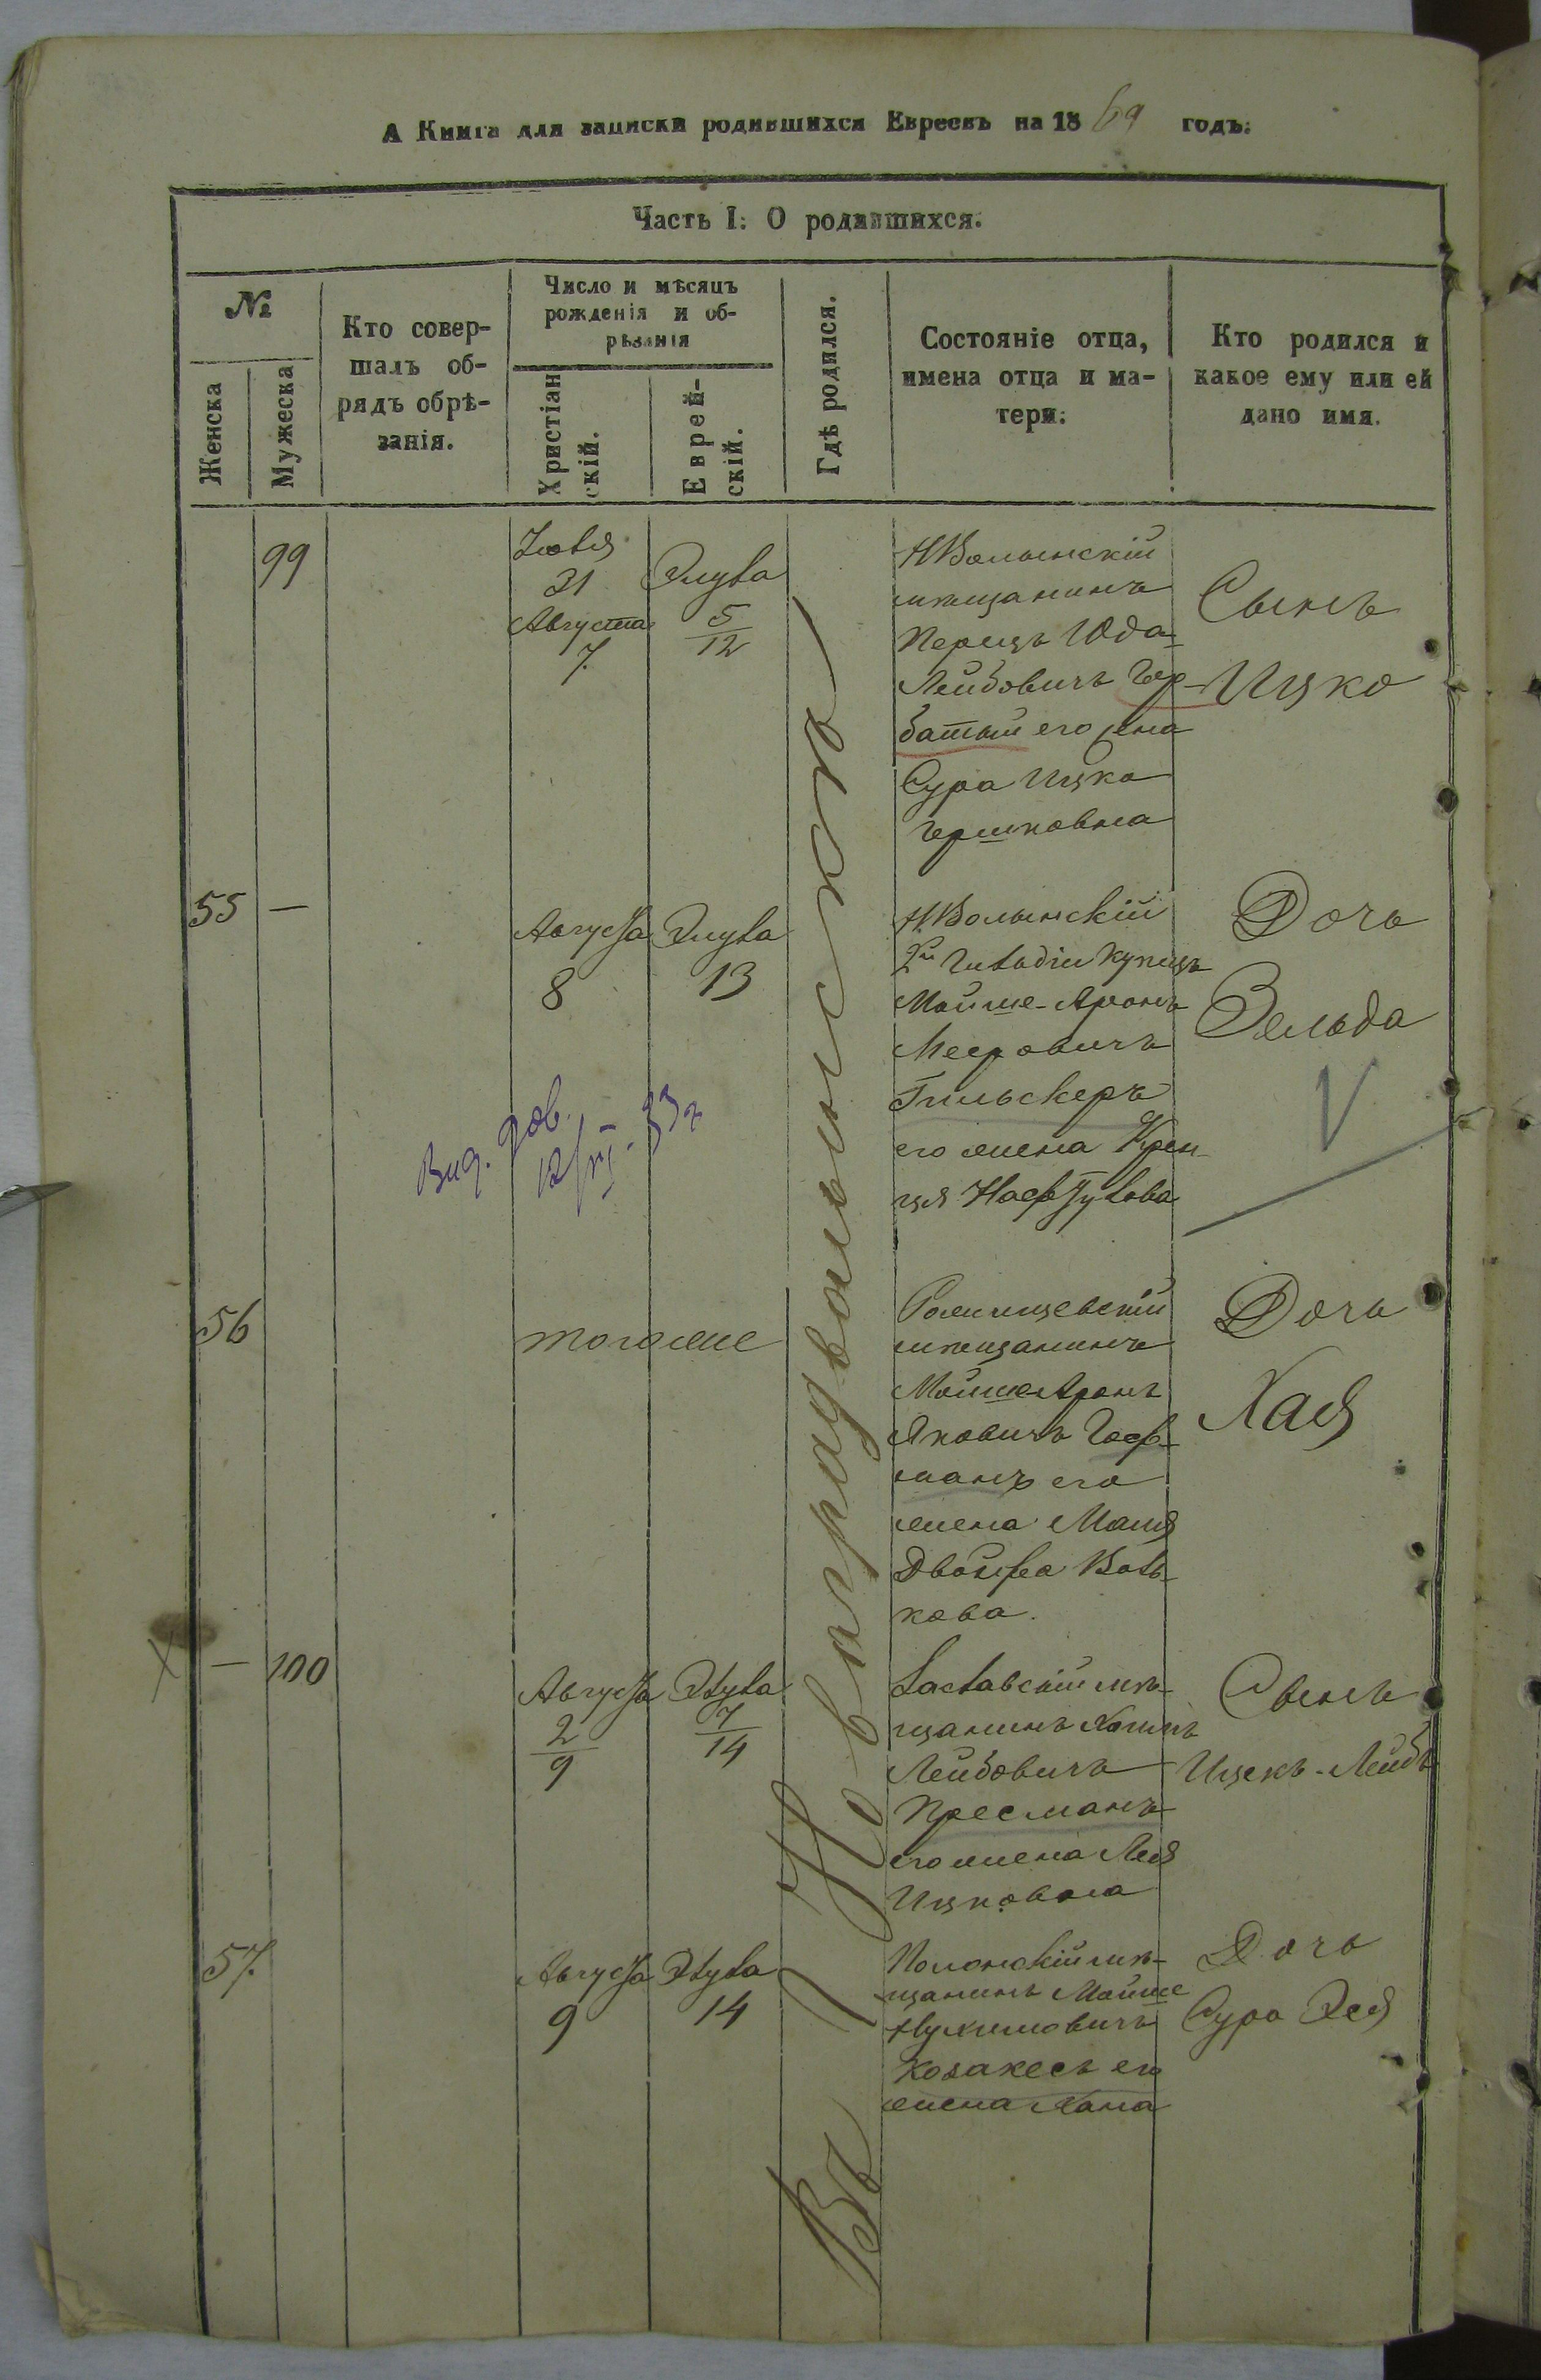 А Книга для записки родившихся Евреевъ на 1869 годъ.
Часть I: О родившихся.
№
Женска
Мужеска
Кто совер-
шалъ об-
рядъ обрѣ-
занія.
Число и мѣсяцъ
рожденія и об-
рѣзанія
Христіан
скій.
Еврей-
скій.
Гдѣ родился.
Состояніе отца,
имена отца и ма-
тери:
Кто родился и
какое ему или ей
дано имя.
Въ Новградволынскѣ
99
Іюля
31
Августа
7
Элула
5
12
НВолынскій
мѣщанинъ
Перецъ Юда-
Лейбовичъ Гор-
батый его жена
Сура Ицка
Гершковна
Сынъ
Ицко
55 —
Августа
8
Элула
13
Н.Волынскій
2й Гильдіи купецъ
Мойше-Аронъ
Мееровичъ
Гильскеръ
его жена Крен-
ця Нафтулова
Дочь
Зельда
V
Вид. дов.
12/VI-33 г
56
тогоже
мѣщанинъ
Мойше Аронъ
Яковичъ Гоф-
манъ его
жена Маля
Двойра Воль-
кова.
Дочь
Хая
— 100
Августа
2
9
Элула
7
14
Заславскій мѣ-
щанинъ Хаимъ
Лейбовичъ
Пресманъ
его жена Лея
Ицковна
Сынъ
Ицекъ-Лейбъ
57.
Августа
9
Элула
14
Полонскій мѣ-
щанинъ Мойше
Нухимовичъ
Козакесъ его
жена Хана
Дочь
Сура Эся